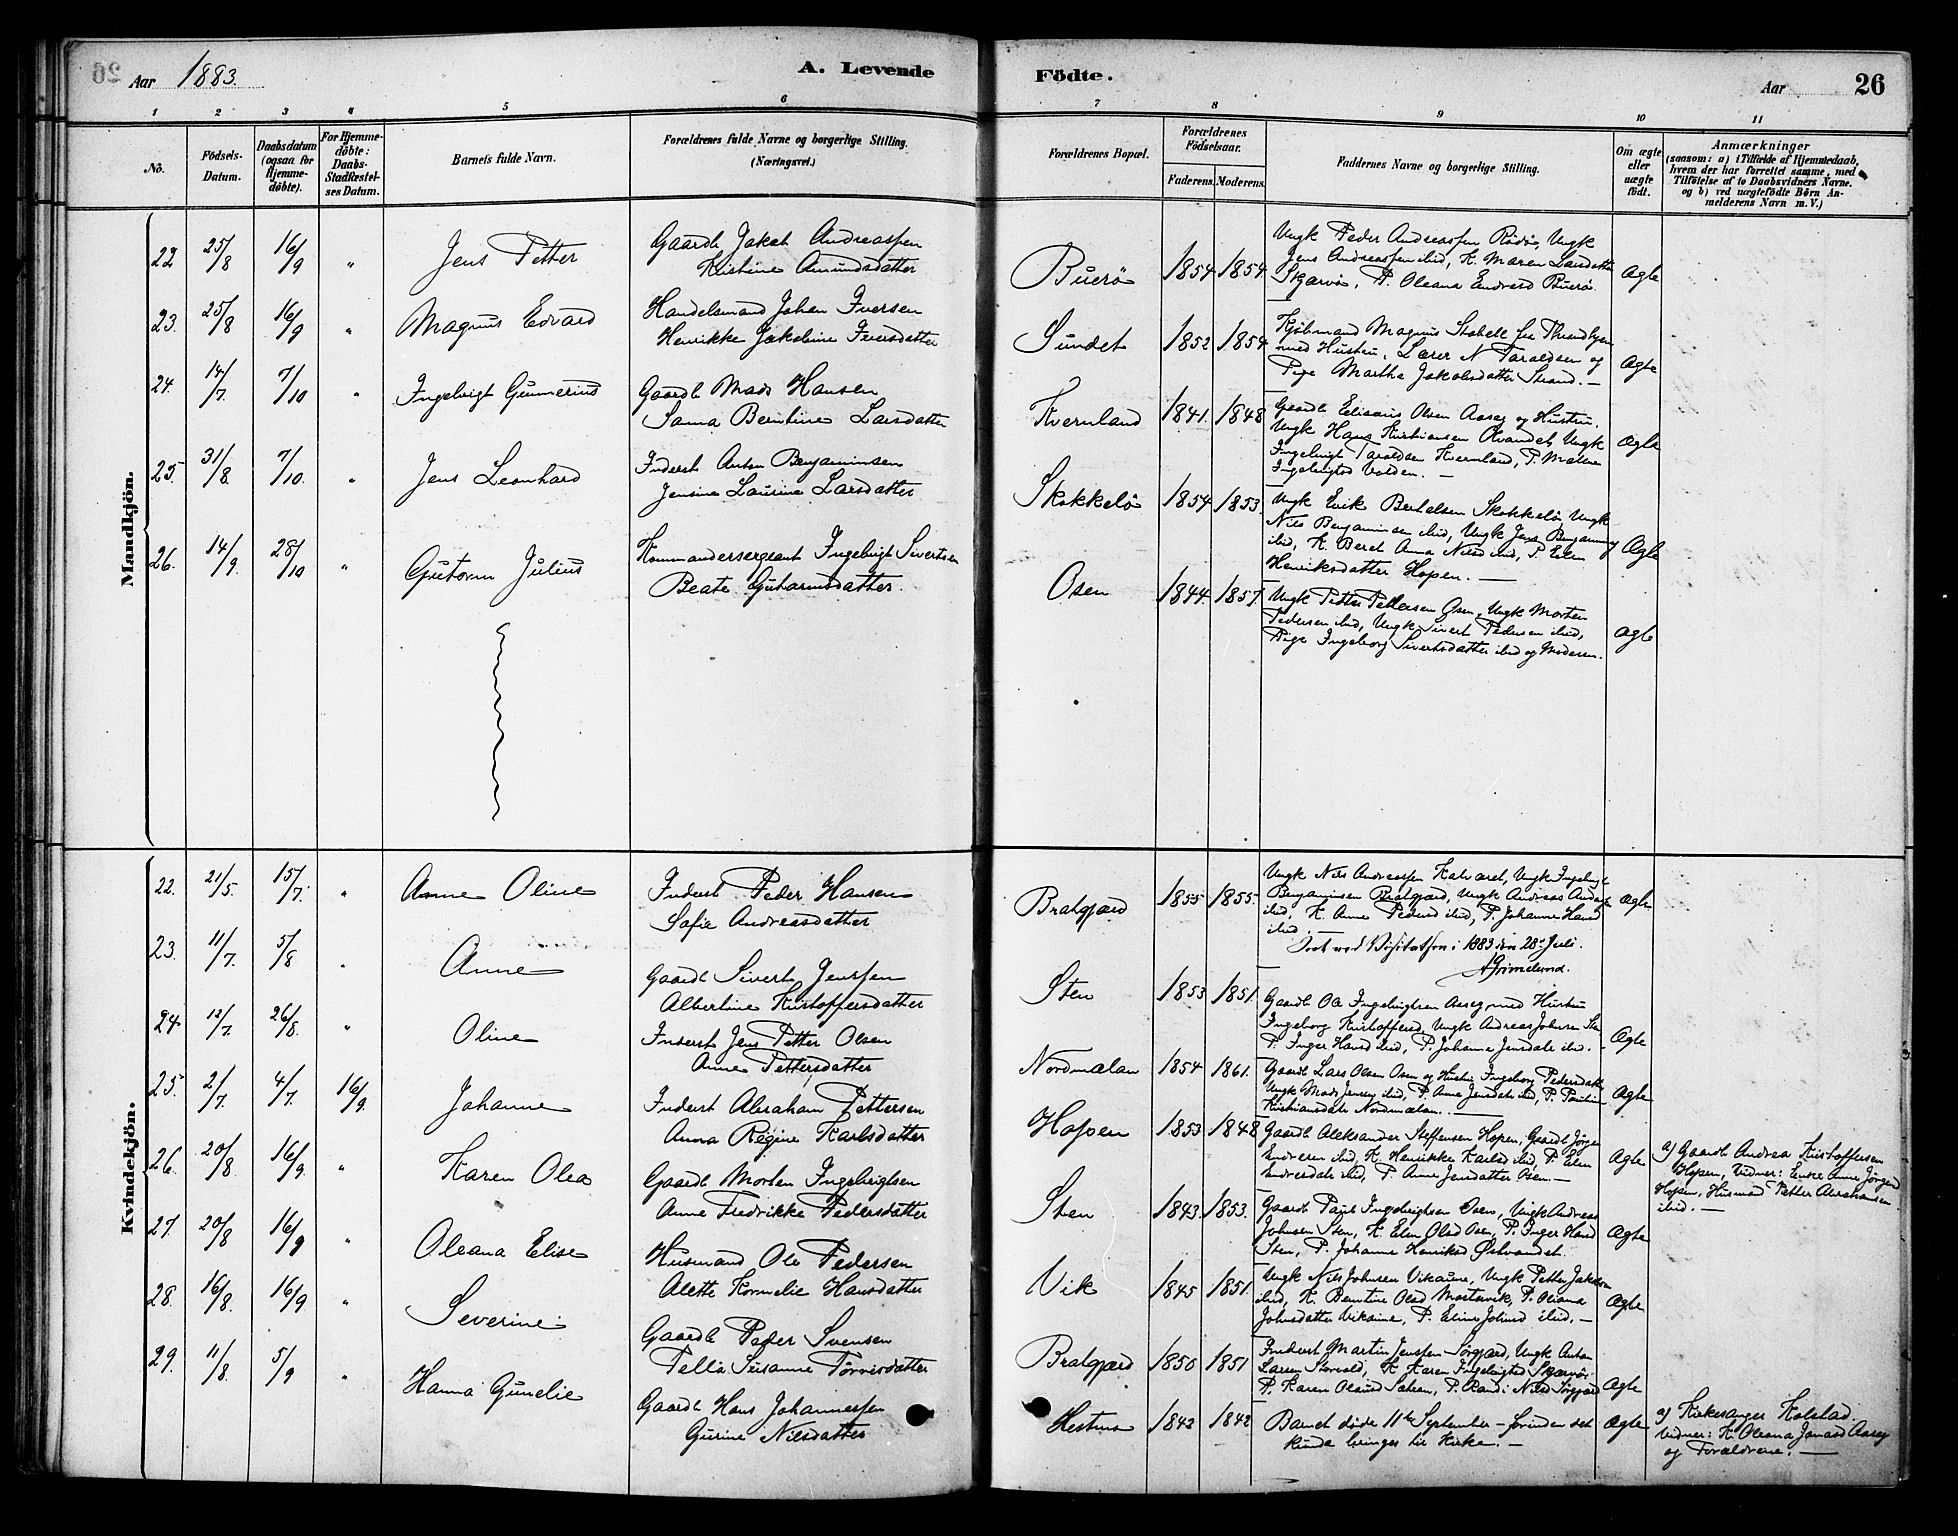 26
Aar 1883.
A. Levende
Födte.
Aar
26
1 2 3 4 5 6 7 8 9 10 11
No.
Födsels-Datum.
Daabsdatum (ogsaa for Hjemmedöbte).
For Hjemmedöbte: Daabs-Stadfæstelses Datum.
Barnets fulde Navn.
Forældrenes fulde Navne og borgerlige Stilling. (Næringsvei.)
Forældrenes Bopæl.
Forældrenes Födselsaar.
Faderens. Moderens.
Faddernes Navne og borgerlige Stilling.
Om ægte eller uægte födt.
Anmærkninger
(saasom: a) i Tilfælde af Hjemmedaab,
hvem der har forrettet samme, med
Tilföielse af to Daabsvidners Navne.
og b) ved uægtefödte Börn Anmelderens Navn m. V.)
Mandkjön.
22 25/8 16/9 " Jens Petter
Gaardb Jakob Andreassen
Kistine Amundsdatter
Buerö 1854 1854
Ungk Peder Andreassen Rödö, Ungk
Jens Andreassen ibid, K. Maren Larsdatter
Skjærvö, P. Oleana Endresd Buerö.
Ægte
23. 25/8 16/9 " Magnus Edvard
Handelsmand Johan Iversen
Henrikke Jakobine Iversdatter
Sundet 1852 1854
Kjöbmand Magnus Stabell fra Throndhjem
med Hustru, Lærer N Taraldsen og
Pige Martha Jakobsdatter Strand. —
Ægte
24. 14/7 7/10 " Ingebrigt Gunnerius
Gaardb Mads Hansen
Sanna Berntine Larsdatter
Kvernland 1841. 1848
Gaardb Edisars Olsen Aasæg og Hustru,
Ungk Hans Kristiansen Övandet, Ungk
Ingebrigt Taraldsen Kvernland, P. Malene
Ingebrigtsd Volden. —
Ægte
25. 31/8 7/10. " Jens Leonhard
Inderst Anton Benjaminsen
Jensine Laurine Larsdatter
Skokkelö 1854 1853.
Ungk Erik Berhelsen Skokkelö, Ungk
Nils Benjaminsen ibid, Ungk Jens Benjamins
ibid, K. Beret Anna Nilsd ibid, P. Elen
Henriksdatter Hopen. —
Ægte
26. 14/9. 28/10 " Gutorm Julius
Kommandersergeant Ingebrigt Sivertsen
Beate Guttormsdatter.
Osen 1844. 1857.
Ungk Petter Pettersen Osen, Ungk Morten
Pedersen ibid, Ungk Sivert Pedersen ibid,
Pige Ingeborg Sivertsdatter ibid og Moderen.
Ægte
Kvindekjön.
22. 21/5. 15/7. " Anne Oline
Inderst Peder Hansen
Sofie Andreasdatter
Bratgjærd 1855 1855.
Ungk Nils Andreassen Kalvaret, Ungk Ingebrigt
Benjaminsen Bratgjærd, Ungk Andreas Andreas
ibid, K. Anne Pedersd ibid, P. Johanne Hansd
ibid. —
Ægte
Seet ved Visitatsen i 1883 den 28. Juli.
AGrimelund.
23. 11/7. 5/8 " Anne
Gaardb Sivert Jenssen
Albertine Kristoffersdatter
Sten 1853 1851.
Gaardb Ole Ingebrigtsen Aasæg med Hustru
Ingeborg Kristoffersd, Ungk Andreas Johnsen Sten
P. Inger Hansd ibid, P. Johanne Jensdatr ibid. -
Ægte
24 12/7. 26/8. " Oline
Inderst Jens Petter Olsen
Anne Pettersdatter
Nordmælan 1854 1861.
Gaardb Lars Olsen Osen og Hustru Ingeborg Pedersdatter
Ungk Mads Jenssen ibid, P. Anne Jensdatr ibid, P. Pauline
Kristiansdatr Nordmælan. —
Ægte
25. 2/7. 4/7. 16/9. Johanne
Inderst Abraham Pettersen
Anna Regine Karlsdatter
Hopen 1853 1848
Gaardb Aleksander Steffensen Hopen, Gaardb Jörgen
Endresen ibid, K. Henrikke Karlsd ibid, P. Elen
Endresdatr ibid, P. Anne Jensdatter Osen. —
Ægte
a) Gaardb Andrea Kristoffersen
Hopen, Vidner: Enke Anne Jörgensd
Hopen, Husmnd Petter Abrahamsen
ibid. —
26. 20/8. 16/9. " Karen Olea
Gaardb Morten Ingebrigtsen
Anne Fredrikke Pedersdatter
Sten 1843. 1853.
Gaardb Paul Ingebrigtsen Osen, Ungk Andreas
Johnsen Sten, K. Elen Olsd Osen, P. Inger Hansd
Sten, P. Johanne Henriksd Östvandet.
Ægte
27. 20/8 16/9 " Oleana Elise
Husmand Ole Pedersen
Alette Kornelie Hansdatter
Vik 1845 1851.
Ungk Nils Johnsen Vikaune, Ungk Petter Jakobsen
ibid, K. Berntine Olsd Mortenvik, P. Oliana
Johnsdatter Vikaune, P. Eline Johnsd ibid. —
Ægte
28. 16/8. 16/9 " Severine
Gaardb Peder Svensen
Pella Susanne Törrisdatter
Bratgjærd 1850 1851
Inderst Martin Jenssen Sörgjærd, Ungk Anton
Larsen Storvold, K. Karen Ingebrigtsd Skjærvö,
P. Karen Olausd Sætran, P. Randi Nilsd Sörgjærd
Ægte
29. 11/8. 5/9 " Hanna Gunelie
Gaardb Hans Johannessen
Gurine Nilsdatter
Hestmo 1842 1842
Barnet döde 11te September - forinden det
kunde bringes til Kirke. —
Ægte
a) Kirkesanger Kolstad.
Vidner: K Oleana Jonasd Aasæg
og Forældrene. —